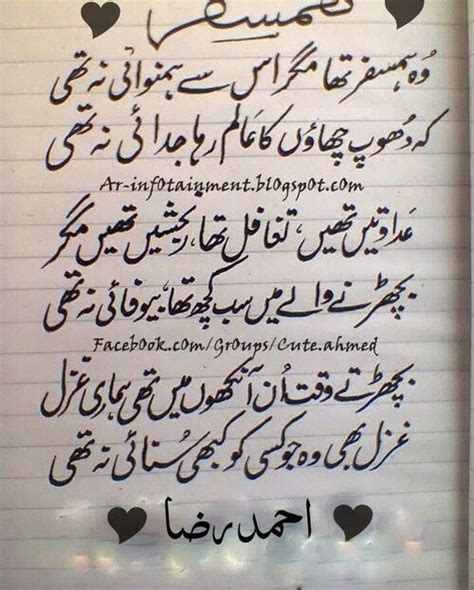 ہمسفر
وہ ہمسفر تھا مگر اس سے ہمنوائی نہ تھی
کہ دُھوپ چھاؤں کا عَالم رہا جدائی نہ تھی
Ar-infotainment.blogspot.com
عَداوتیں تھیں، تغافل تھا، رنجشیں تھیں مگر
بچھڑنے والے میں سب کچھ تھا، بیوفائی نہ تھی
Facebook.com/Groups/Cute.ahmed
بچھڑتے وقت اُن آنکھوں میں تھی ہماری غزل
غزل بھی وہ جو کسی کو کبھی سُنائی نہ تھی
احمد رضا